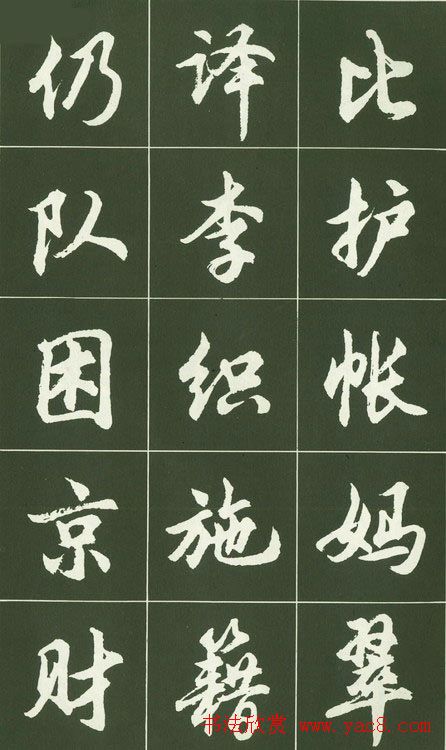 比护帐妈翠
译李织施籍
仍队困京财
书法欣赏 www.yac8.com